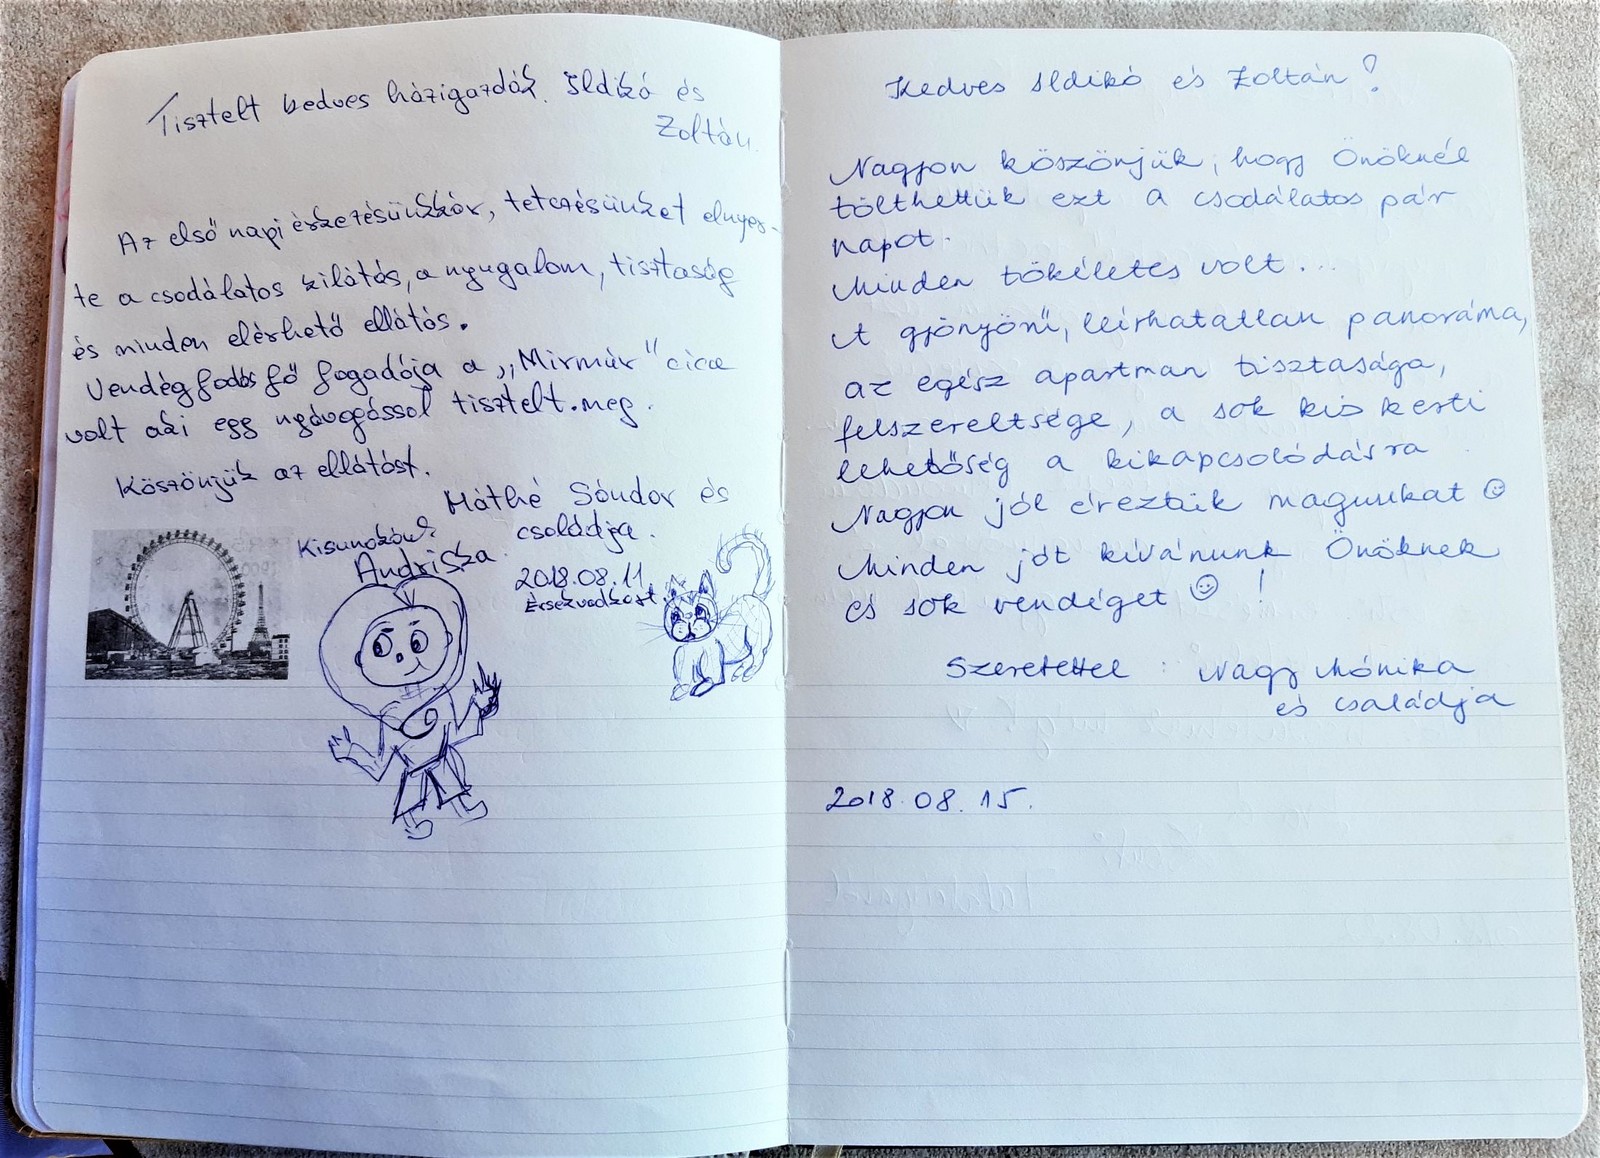 Tisztelt kedves házigazdák. Ildikó és
Zoltán.
Az első napi érkezésünkkór, tetczésünket elnyer-
te a csodálatos kilátás, a nyugalom, tisztaság
és minden elérhető ellátás.
Vendégfodás fő fogadója a ,,Mirmúr" cica
volt aki egy nyávogással tisztelt.meg.
Köszönjük az ellátást.
Máthé Sándor és
családja.
Kisunokánk
Andriska
2018.08.11.
Érsekvadkert
Kedves Ildikó és Zoltán!
Nagyon köszönjük, hogy Önöknél
tölthettük ezt a csodálatos pár
napot.
Minden tökéletes volt...
A gyönyörű, leírhatatlan panoráma,
az egész apartman tisztasága,
felszereltsége, a sok kis kerti
lehetőség a kikapcsolódásra.
Nagyon jól éreztük magunkat ☺
Minden jót kívánunk Önöknek
és sok vendéget ☺ !
Szeretettel: Nagy Mónika
és családja
2018.08.15.